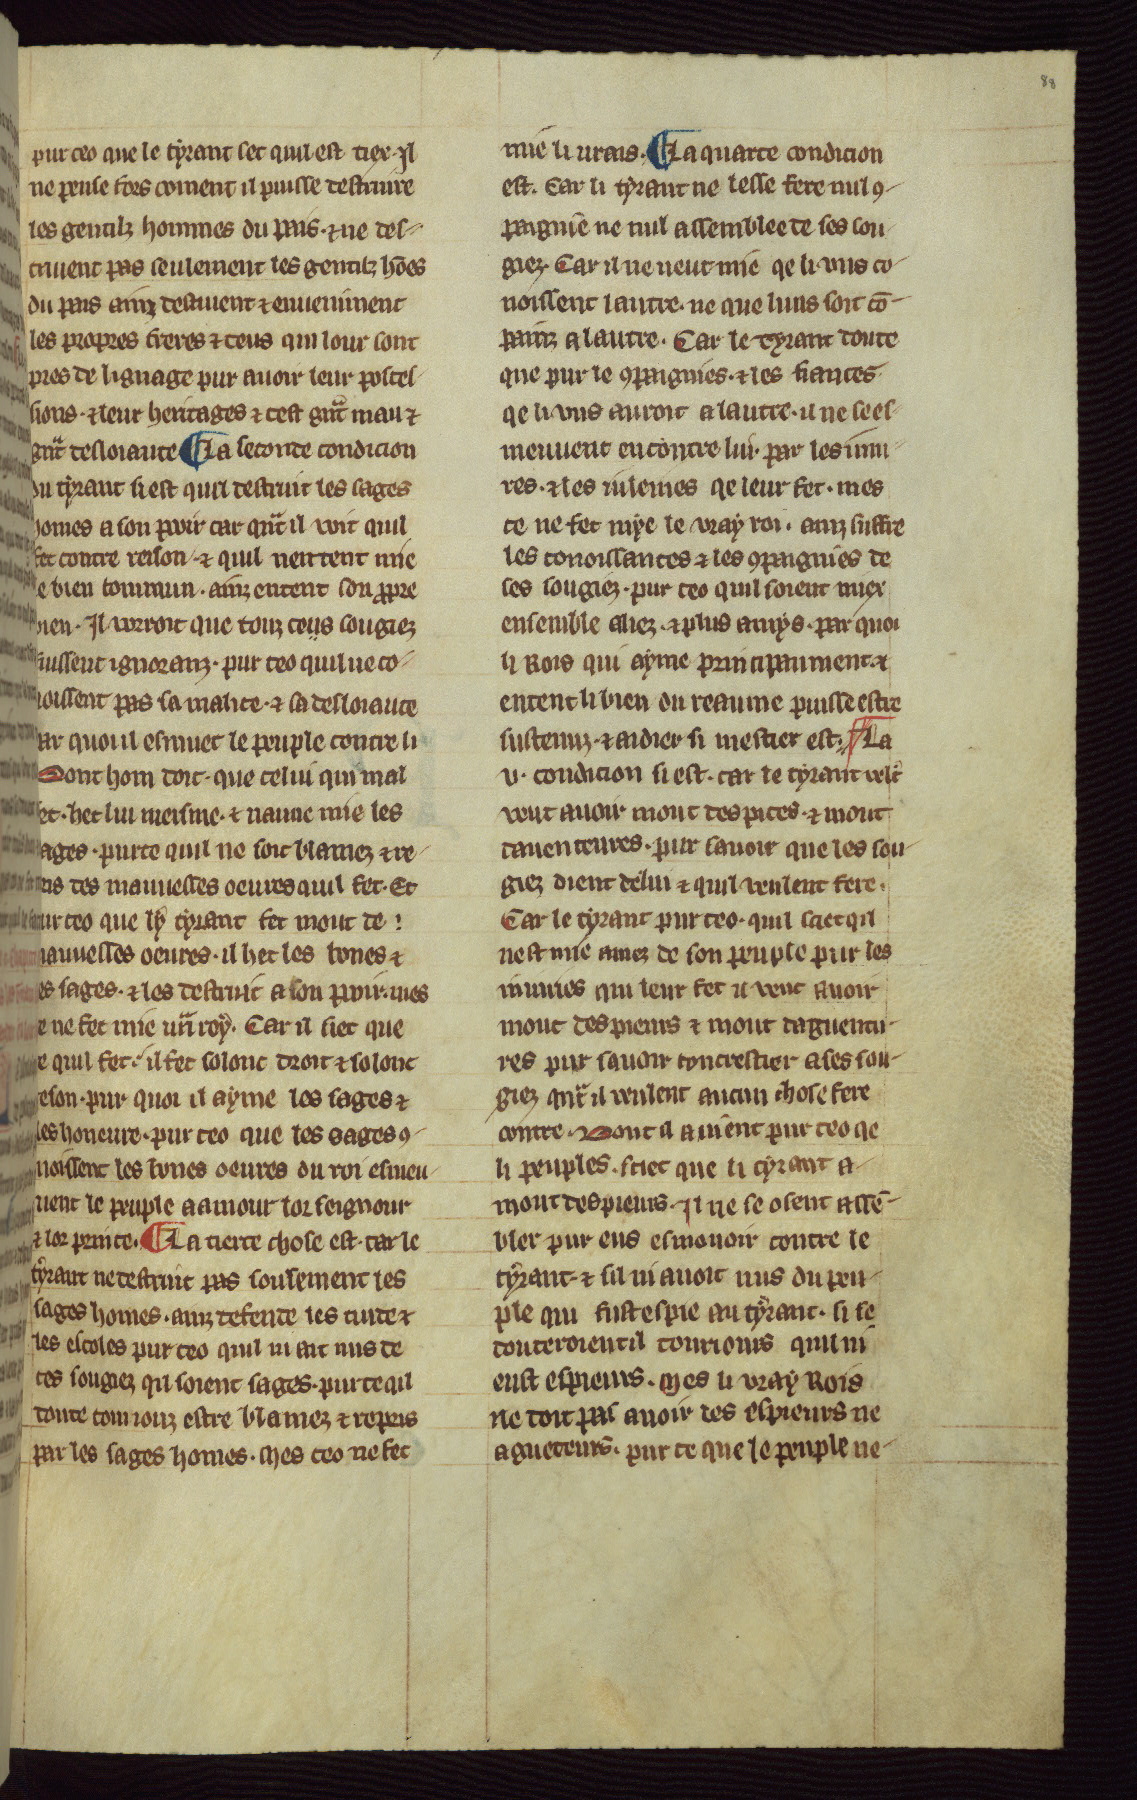 88
pur ceo que le tẏrant set quil est tiex. Il
ne pense fors coment il puisse destruire
les gentilz hommes du païs. ⁊ ne des-
truient pas seulement les gentilz hōes
du païs ainz destuient ⁊ enueniment
les propres freres ⁊ ceus qui lour sont
pres de lignage pur auoir leur posses
sions. ⁊ leur heritages ⁊ cest gñt mau ⁊
gñt desloiaute ¶ La seconde condicion
du tẏrant si est quil destruit les sages
homes a son poir car qñt il voit quil
fet contre reison. ⁊ quil nentent mie
le bien commun. ainz entent son ꝓpre
bien. Il vorroit que touz ceus sougiez
fussent ignoranz. pur ceo quil ne co-
noissent pas sa malice. ⁊ sa desloiaute
par quoi il esmuet le peuple contre li
Dont hom doit. que celui qui mal
fet. het lui meisme. ⁊ naime mie les
sages. purce quil ne soit blamez ⁊ re-
pris des mauuesses oeures quil fet. Et
pur ceo que lẏ tẏrant fet mout de
mauuesses oeures. il het les bones ⁊
les sages. ⁊ les destruit a son poir. mes
ce ne fet mie vrī roẏ. Car il siet que
ce quil fet. il fet solonc droit ⁊ solonc
reson. pur quoi il ayme les sages ⁊
les honeure. pur ceo que les sages ꝯ-
noissent les bones oeures du roi esmeu-
uent le peuple a amour lor seignour
⁊ lor prince. ¶ La tierce chose est. car le
tẏrant ne destruit pas soulement les
sages homes. ainz defende les cuite ⁊
les escoles pur ceo quil ni ait nus de
ces sougiez qil soient sages. purce qil
doute tom iouz estre blamez ⁊ repris
par les sages homes. Mes ceo ne fet
mie li urais. ¶ La quarte condicion
est. Car li tẏrant ne lesse fere nul ꝯ-
paignie ne nul assemblee de ses sou-
giez. Car il ne veut mie qe li vns co-
noissent lautre. ne que luns soit cō-
painz a lautre. Car le tyrant doute
que pur le ꝯpaignies. ⁊ les fiances
qe li vns auroit a lautre. il ne se es-
meuuent encontre lui. par les iniu-
res. ⁊ les iulemes qe leur fet. mes
ce ne fet mye le vray roi. ainz suffre
les conoissances ⁊ les ꝯpaignies de
ses sougiez. pur ceo quil soient miex
ensemble aliez. ⁊ plus amẏs. par quoi
li Rois qui aẏme principaument ⁊
entent li bien du reaume puisse estre
sustenuz. ⁊ aidier si mestier est. ¶ La
v. condicion si est. car le tẏrant
veut auoir mout despices. ⁊ mout
dauenteures. pur sauoir que les sou-
giez dient de lui ⁊ quil veulent fere.
Car le tẏrant pur ceo. quil sciet qil
nest mie amez de son peuple pur les
iniuries qui leur fet il veut auoir
mout despieurs ⁊ mout daguentu-
res pur sauoir contrestier a ses sou-
giez qñt il veulent aucun chose fere
contre. Dont il auient pur ceo qe
li peuples. sciet que li cẏrant a
mout despieurs. Il ne se osent assē-
bler pur eus esmouoir contre le
tẏrant. ⁊ sil ni auoit nus du peu-
ple qui fust espie au tẏrant. si se
douteroient il touriours quil ni
eust espieurs. Mes li vraẏ Rois
ne doit pas auoir des espieurs ne
agueteurs. pur ce que le peuple ne-